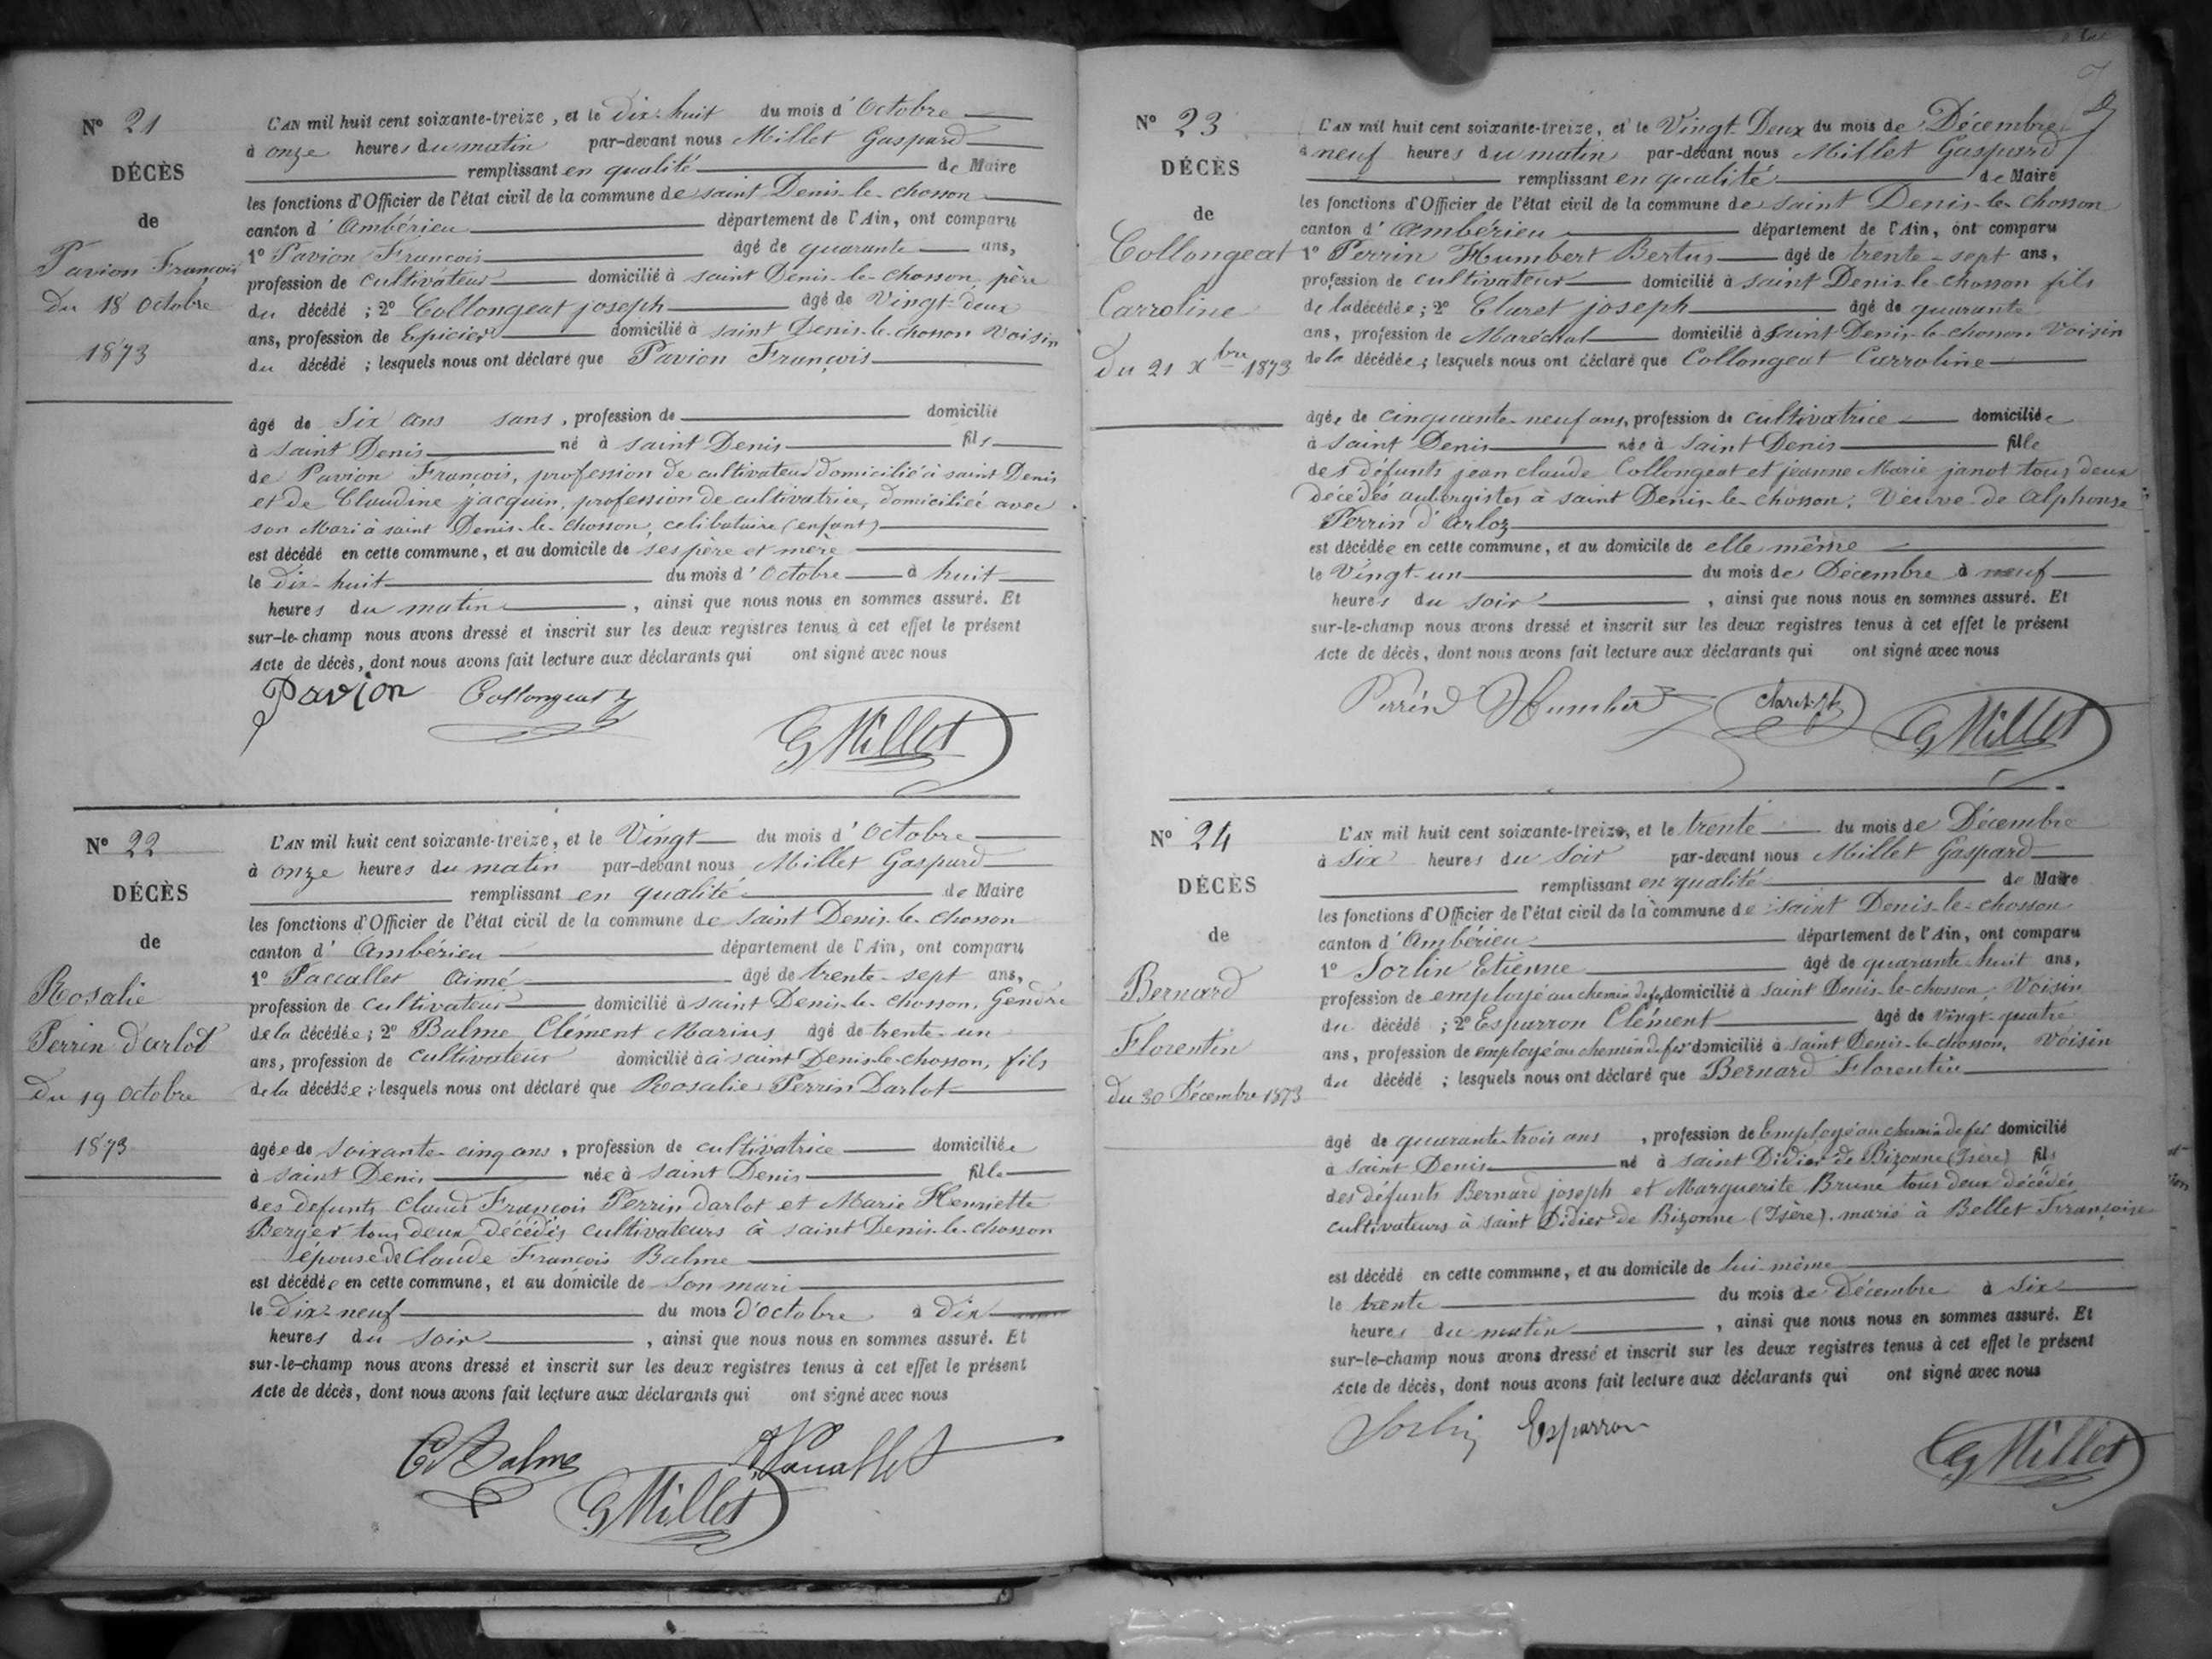 N° 21
DÉCÈS
de
Pavion François
Du 18 Octobre
1873
L'AN mil huit cent soixante-treize, et le Dix-huit du mois d'Octobre
à onze heures du matin par-devant nous Millet Gaspard
remplissant en qualité de Maire
les fonctions d'Officier de l'état civil de la commune de saint Denis-le-chosson
canton d'Ambérieu département de l'Ain, ont comparu
1° Pavion François âgé de quarante ans,
profession de cultivateur domicilié à saint Denis-le-chosson, père
du décédé ; 2° Collongeat joseph âgé de Vingt-deux
ans, profession de Epicier domicilié à saint Denis-le-chosson Voisin
du décédé ; lesquels nous ont déclaré que Pavion François
âgé de Six ans sans, profession de domicilié
à saint Denis né à saint Denis fils
de Pavion François, profession de cultivateur domicilié à saint Denis
et de Claudine jacquin, profession de cultivatrice, domiciliée avec
son Mari à saint Denis-le-chosson, celibataire (enfant)
est décédé en cette commune, et au domicile de ses père et mère
le Dix-huit du mois d'Octobre à huit
heures du matin, ainsi que nous nous en sommes assuré. Et
sur-le-champ nous avons dressé et inscrit sur les deux registres tenus à cet effet le présent
Acte de décès, dont nous avons fait lecture aux déclarants qui ont signé avec nous
Pavion Collongeat
G Millet
N° 22
DÉCÈS
de
Rosalie
Perrin d'arlot
Du 19 Octobre
1873
L'AN mil huit cent soixante-treize, et le Vingt du mois d'Octobre
à onze heures du matin par-devant nous Millet Gaspard
remplissant en qualité de Maire
les fonctions d'Officier de l'état civil de la commune de saint Denis-le-chosson
canton d'Ambérieu département de l'Ain, ont comparu
1° Paccallet Aimé âgé de trente-sept ans,
profession de cultivateur domicilié à saint Denis-le-chosson, Gendre
de la décédée ; 2° Balme Clément Marius âgé de trente-un
ans, profession de cultivateur domicilié à à saint Denis-le-chosson, fils
de la décédée ; lesquels nous ont déclaré que Rosalie Perrin Darlot
âgée de soixante-cinq ans, profession de cultivatrice domiciliée
à saint Denis née à saint Denis fille
des defunts claude François Perrin darlot et Marie Henriette
Berger tous deux décédés cultivateurs à saint Denis-le-chosson
épouse de Claude François Balme
est décédée en cette commune, et au domicile de son mari
le Dix-neuf du mois d'octobre à dix
heures du soir, ainsi que nous nous en sommes assuré. Et
sur-le-champ nous avons dressé et inscrit sur les deux registres tenus à cet effet le présent
Acte de décès, dont nous avons fait lecture aux déclarants qui ont signé avec nous
Balme
G Millet
N° 23
DÉCÈS
de
Collongeat
Carroline
Du 21 Xbre 1873
L'AN mil huit cent soixante-treize, et le Vingt-Deux du mois de Décembre
à neuf heures du matin par-devant nous Millet Gaspard
remplissant en qualité de Maire
les fonctions d'Officier de l'état civil de la commune de saint Denis-le-chosson
canton d'Ambérieu département de l'Ain, ont comparu
1° Perrin Humbert Bertus âgé de trente-sept ans,
profession de cultivateur domicilié à saint Denis-le-chosson fils
de la décédée ; 2° Claret joseph âgé de quarante
ans, profession de Maréchal domicilié à saint Denis-le-chosson Voisin
de la décédée ; lesquels nous ont déclaré que Collongeat Carroline
âgée de cinquante-neuf ans, profession de cultivatrice domiciliée
à saint Denis née à saint Denis fille
des défunts jean claude Collongeat et jeanne Marie janot tous deux
décédés aubergistes à saint Denis-le-chosson; Veuve de alphonse
Perrin d'arloz
est décédée en cette commune, et au domicile de elle même
le Vingt-un du mois de Décembre à neuf
heures du soir, ainsi que nous nous en sommes assuré. Et
sur-le-champ nous avons dressé et inscrit sur les deux registres tenus à cet effet le présent
Acte de décès, dont nous avons fait lecture aux déclarants qui ont signé avec nous
Perrin Humber Claret G Millet
N° 24
DÉCÈS
de
Bernard
Florentin
du 30 Décembre 1873
L'AN mil huit cent soixante-treize, et le trente du mois de Décembre
à Six heures du Soir par-devant nous Millet Gaspard
remplissant en qualité de Maire
les fonctions d'Officier de l'état civil de la commune de saint Denis-le-chosson
canton d'Ambérieu département de l'Ain, ont comparu
1° Sorlin Etienne âgé de quarante-huit ans,
profession de employé au chemin de fer domicilié à saint Denis-le-chosson, Voisin
du décédé ; 2° Esparron Clément âgé de vingt-quatre
ans, profession de employé au chemin de fer domicilié à saint Denis-le-chosson, Voisin
du décédé ; lesquels nous ont déclaré que Bernard Florentin
âgé de quarante-trois ans, profession de Employé au chemin de fer domicilié
à saint Denis né à saint Didier de Bizonne (Isère) fils
des défunts Bernard joseph et Marguerite Brune tous deux décédés
cultivateurs à saint Didier de Bizonne (Isère). marié à Bellet Françoise
est décédé en cette commune, et au domicile de lui-même
le trente du mois de Décembre à Six
heures du matin, ainsi que nous nous en sommes assuré. Et
sur-le-champ nous avons dressé et inscrit sur les deux registres tenus à cet effet le présent
Acte de décès, dont nous avons fait lecture aux déclarants qui ont signé avec nous
Sorlin Esparron
G Millet